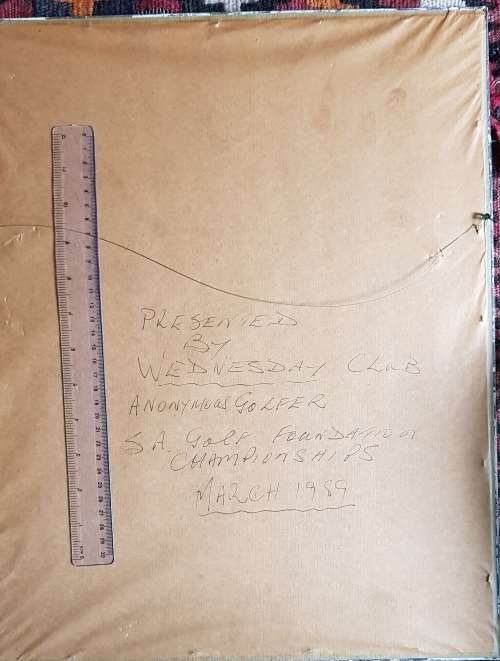 PRESENTED
BY
WEDNESDAY CLUB
ANONYMOUS GOLFER
S.A. GOLF FOUNDATION
CHAMPIONSHIPS
MARCH 1989